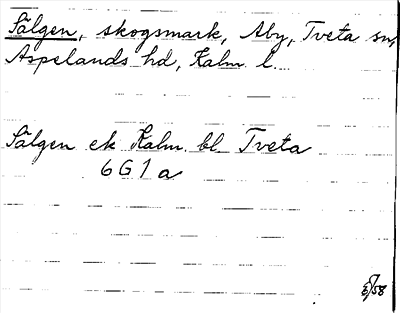 Sälgen, skogsmark, Åby, Tveta sn,
Aspelands hd, Kalm. l.
Sälgen ek Kalm. bl. Tveta
6G1a